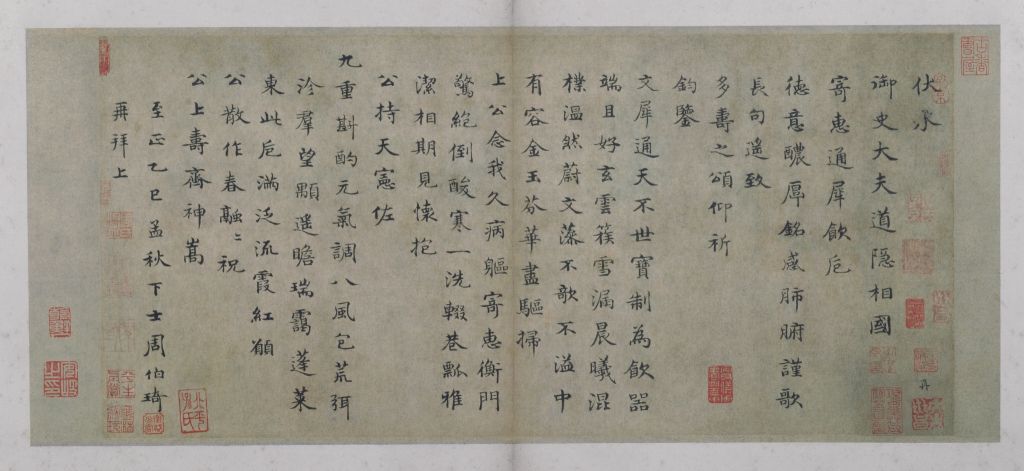 伏承
御史大夫道隐相國
寄惠通犀飲卮
德意醲厚銘感肺腑謹歌
長句遙致
多壽之頌仰祈
鈞鑒
文犀通天不世寶制為飲器
端且好玄雲簇雪漏晨曦混
樸溫然蔚文藻不歌不溢中
有容金玉芬華盡驅掃
上公念我久病軀寄惠衡門
驚絕倒酸寒一洗輟巷瓢雅
潔相期見懷抱
公持天憲佐
九重斟酌元氣調八風包荒弭
沴羣望顒遥瞻瑞靄蓬萊
東此卮滿泛流霞紅願
公散作春融〻祝
公上壽齊神嵩
至正乙巳孟秋下士周伯琦
再拜上